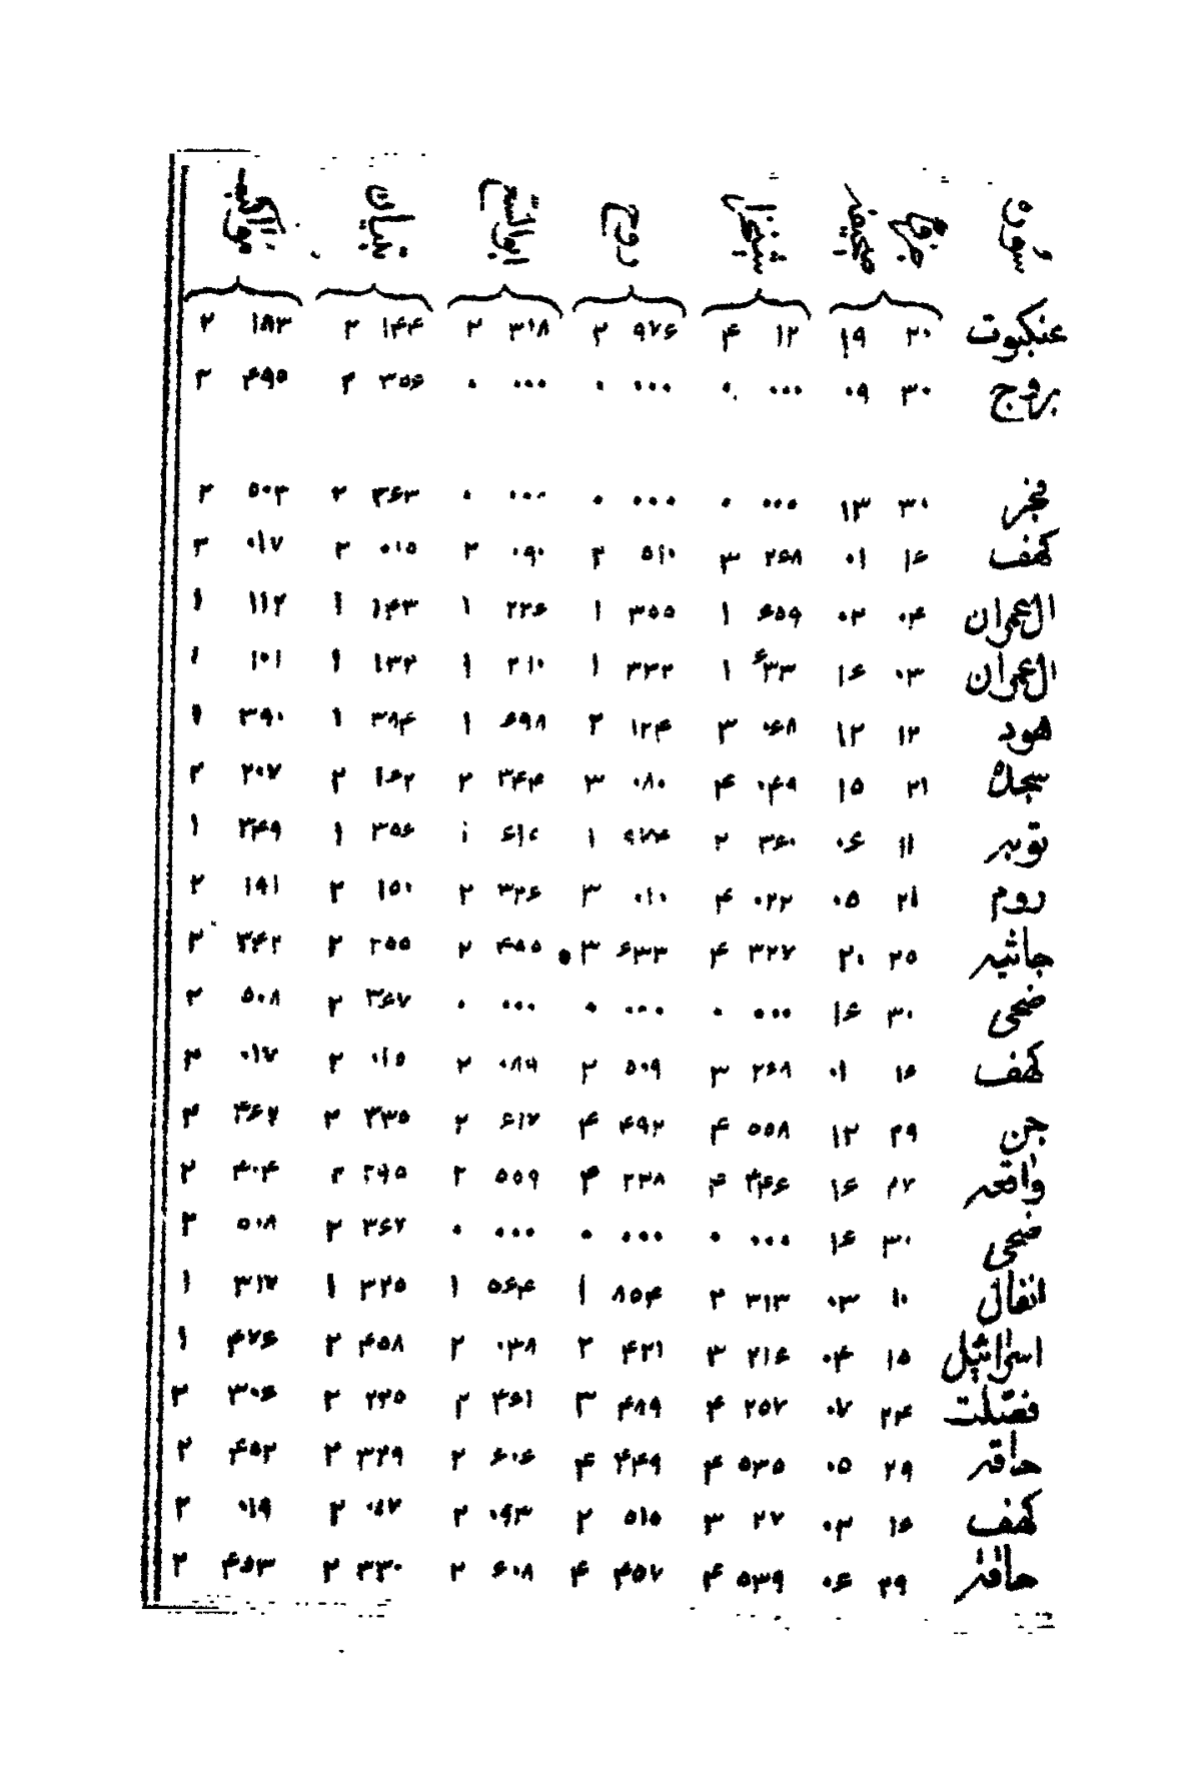 سوره جزو صحیفه شیخزاده روح ابو السعود تبیان مواکب
عنکبوت ۲۰ ۱۹ ۱۲ ۴ ۹۷۶ ۲ ۳۱۸ ۲ ۱۴۴ ۲ ۱۸۳ ۲
بروج ۳۰ ۰۹ ۰۰۰ ۰ ۰۰۰ ۰ ۰۰۰ ۰ ۳۵۶ ۲ ۴۹۵ ۲
فجر ۳۰ ۱۳ ۰۰۰ ۰ ۰۰۰ ۰ ۰۰۰ ۰ ۳۶۳ ۲ ۵۰۳ ۲
کهف ۱۶ ۰۱ ۲۶۸ ۳ ۵۱۰ ۲ ۰۹۰ ۲ ۰۱۵ ۲ ۰۱۷ ۲
ال عمران ۰۴ ۰۲ ۶۵۹ ۱ ۳۵۵ ۱ ۲۲۶ ۱ ۱۴۳ ۱ ۱۱۲ ۱
ال عمران ۰۳ ۱۶ ۶۳۳ ۱ ۳۳۲ ۱ ۲۱۰ ۱ ۱۳۲ ۱ ۱۰۱ ۱
هود ۱۲ ۱۲ ۰۶۸ ۳ ۱۲۴ ۲ ۶۹۸ ۱ ۳۸۴ ۱ ۳۹۰ ۱
سجده ۲۱ ۱۵ ۰۴۹ ۴ ۰۸۰ ۳ ۳۴۴ ۲ ۱۶۲ ۲ ۲۰۷ ۲
توبه ۱۱ ۰۶ ۳۶۰ ۲ ۱ ۱ ۳۵۶ ۱ ۳۴۹ ۱
روم ۲۱ ۰۵ ۰۲۲ ۴ ۰۱۰ ۳ ۳۲۶ ۲ ۱۵۰ ۲ ۱۹۱ ۲
جاثیه ۲۵ ۲۰ ۳۲۷ ۴ ۶۳۳ ۳ ۴۵۵ ۲ ۲۵۵ ۲ ۳۴۲ ۲
ضحی ۳۰ ۱۶ ۰۰۰ ۰ ۰۰۰ ۰ ۰۰۰ ۰ ۳۶۷ ۲ ۵۰۸ ۲
کهف ۱۶ ۰۱ ۲۶۸ ۳ ۵۰۹ ۲ ۰۸۹ ۲ ۰۱۵ ۲ ۰۱۷ ۲
جن ۲۹ ۱۲ ۵۵۸ ۴ ۴۹۲ ۴ ۶۱۷ ۲ ۳۳۵ ۲ ۴۶۷ ۲
واقعه ۲۷ ۱۶ ۴۴۶ ۴ ۲۳۸ ۴ ۵۵۹ ۲ ۲۹۵ ۲ ۴۰۴ ۲
ضحی ۳۰ ۱۶ ۰۰۰ ۰ ۰۰۰ ۰ ۰۰۰ ۰ ۳۶۷ ۲ ۵۰۸ ۲
انفال ۱۰ ۰۳ ۳۱۳ ۲ ۸۵۴ ۱ ۵۶۴ ۱ ۳۲۵ ۱ ۳۱۷ ۱
اسرائیل ۱۵ ۰۴ ۲۱۶ ۳ ۴۲۱ ۲ ۰۳۸ ۲ ۴۵۸ ۲ ۴۷۶ ۱
فصلت ۲۴ ۰۷ ۲۵۷ ۴ ۴۸۹ ۳ ۴۶۱ ۲ ۲۲۵ ۲ ۳۰۶ ۲
حاقه ۲۹ ۰۵ ۵۳۵ ۴ ۴۴۹ ۴ ۶۰۶ ۲ ۳۲۹ ۲ ۴۵۲ ۲
کهف ۱۶ ۰۳ ۲۷ ۳ ۵۱۵ ۲ ۰۹۳ ۲ ۰۱۷ ۲ ۰۱۹ ۲
حاقه ۲۹ ۰۶ ۵۳۹ ۴ ۴۵۷ ۴ ۶۰۸ ۲ ۳۳۰ ۲ ۴۵۳ ۲